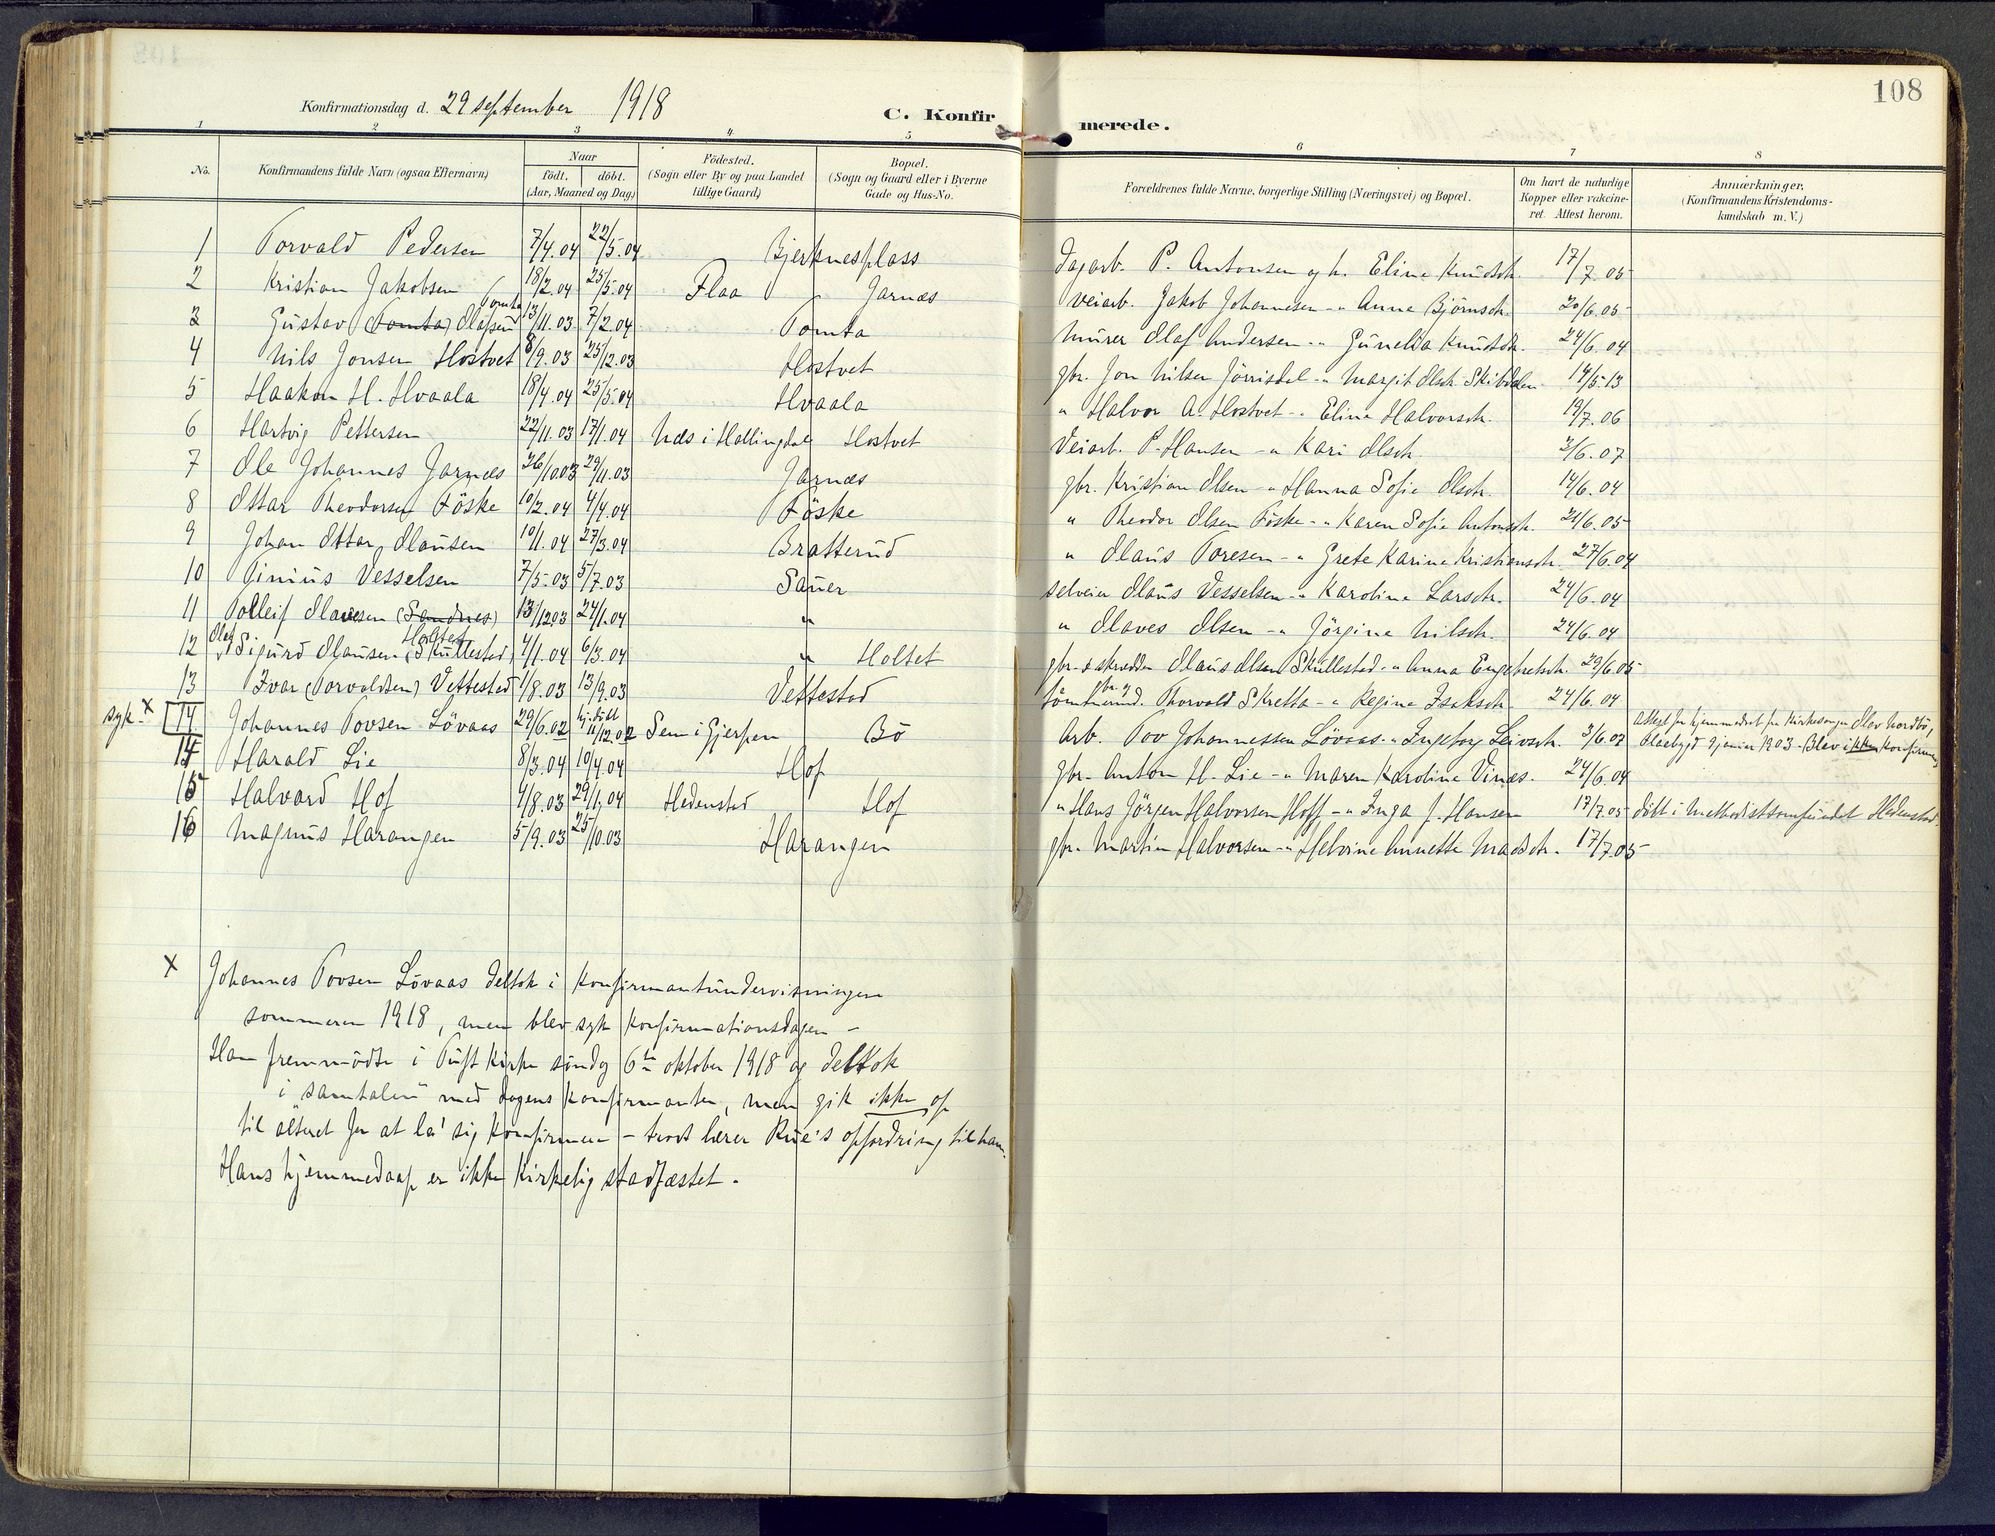 108
Konfirmationsdag d. 29 september 1918
C. Konfirmerede.
1 2 3 4 5 6 7 8
No.
Konfirmandens fulde Navn (ogsaa Efternavn)
Naar
født. døbt.
(Aar, Maaned og Dag)
Födested.
(Sogn eller By og paa Landet
tillige Gaard)
Bopæl.
(Sogn og Gaard eller i Byerne
Gade og Hus-No.
Forældrenes fulde Navne, borgerlige Stilling (Næringsvei) og Bopæl.
Om havt de naturlige
Kopper eller vakcine-
ret. Attest herom.
Anmærkninger,
(Konfirmandens Kristendoms-
kundskab m. V.)
1 Torvald Pedersen 7/4.04 22/5.04 Bjerknesplass Dagarb. P. Antonsen og h. Eline Knudsdtr. 17/7.05
2 Kristian Jakobsen 18/2.04 25/5.04 Flaa Jarnæs Veiarb. Jakob Johannesen -"- Anna Bjørnsdtr. 20/6.05
3 Gustav (Tomta) Olafsen Tomta 13/11.03 7/2.04 Tomta Murer Olaf Andersen -"- Gunelia Knudsdtr. 24/6.04
4 Nils Jonsen Hostvet 8/9.03 25/12.03 Hostvet gbr. Jon Nilsen Jörrisdal -"- Margit Olsdtr. Skibdalen 14/5.13
5 Haakon H. Hvaala 18/4.04 25/5.04 Hvaala " Halvor A. Hostvet -"- Eline Halvorsdtr. 19/7.06
6 Hartvig Pettersen 22/11.03 17/1.04 Næs i Hallingdal Hostvet Veiarb. P. Hansen -"- Kari Olsdtr. 2/6.07
7 Ole Johannes Jarnæs 26/10.03 29/11.03 Jarnæs gbr. Kristian Olsen -"- Hanna Sofie Olsdtr. 14/6.04
8 Ottar Theodorsen Föske 10/2.04 4/4.04 Föske " Theodor Olsen Föske -"- Karen Sofie Antonsdtr. 24/6.05
9 Johan Ottar Olausen 10/1.04 27/3.04 Bratterud " Olaus Toresen -"- Grete Karine Kristiansdtr. 27/6.04
10 Ginius Vesselsen 7/5.03 5/7.03 Sauer selveier Olaus Vesselsen -"- Karoline Larsdtr. 24/6.04
11 Tolleif Olavesen (Sandnes) 13/12.03 24/1.04 " " Olaves Olsen -"- Jörgine Nilsdtr. 24/6.04
12 Olaf Sigurd Olausen (Skullestad) Holtet 4/1.04 6/3.04 " Holtet gbr. & skrædder Olaus Olsen Skullestad -"- Anna Engebretsdtr. 29/6.05
13 Ivar (Torvaldsen) Vettestad 1/8.03 13/9.03 Vettestad gbr. og tömmermd. Thorvald Skretta -"- Regine Isaksdtr. 24/6.04
syk. x 14 Johannes Tovsen Lövaas 29/6.02 hj.döbt 11/12.02 Sem i Gjerpen Bö Arb. Tov Johannessen Lövaas -"- Ingeborg Leivsdtr. 3/6.07 Attest for hjemmedaab fra Kirkesanger Olav Nordbö,
Blaebygd 9 januar 1903 - Blev ikke konfirmert
14 Harald Lie 8/3.04 10/4.04 Hof gbr. Anton H. Lie -"- Maren Karoline Vinæs. 24/6.04
15 Halvard Hof 4/8.03 29/1.04 Hedenstad Hof " Hans Jörgen Halvorsen Hoff -"- Inga J. Hansen 17/7.05 döbt i Methodistsamfundet Hedenstad.
16 Magnus Harangen 5/9.03 25/10.03 Harangen gbr. Martin Halvorsen -"- Helvine Annette Madsdtr. 17/7.05
x Johannes Tovsen Lövaas deltok i konfirmantundervisningen
sommeren 1918, men blev syk konfirmationsdagen -
Han fremmödte i Tuft Kirke söndag 6te oktober 1918 og deltok
i "samtalen" med dagens konfirmanter, men gik ikke op
til alteret for at la' sig konfirmere - trods lærer Rue's opfordring til ham.
Hans hjemmedaap er ikke kirkelig stadfæstet.